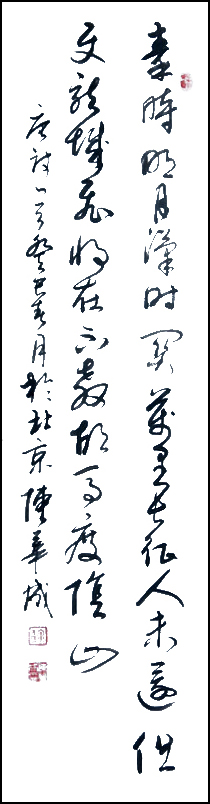 秦時明月漢時關萬里長征人未還但
使龍城飛將在不教胡馬度陰山
唐詩一首癸巳春月於北京陳華城